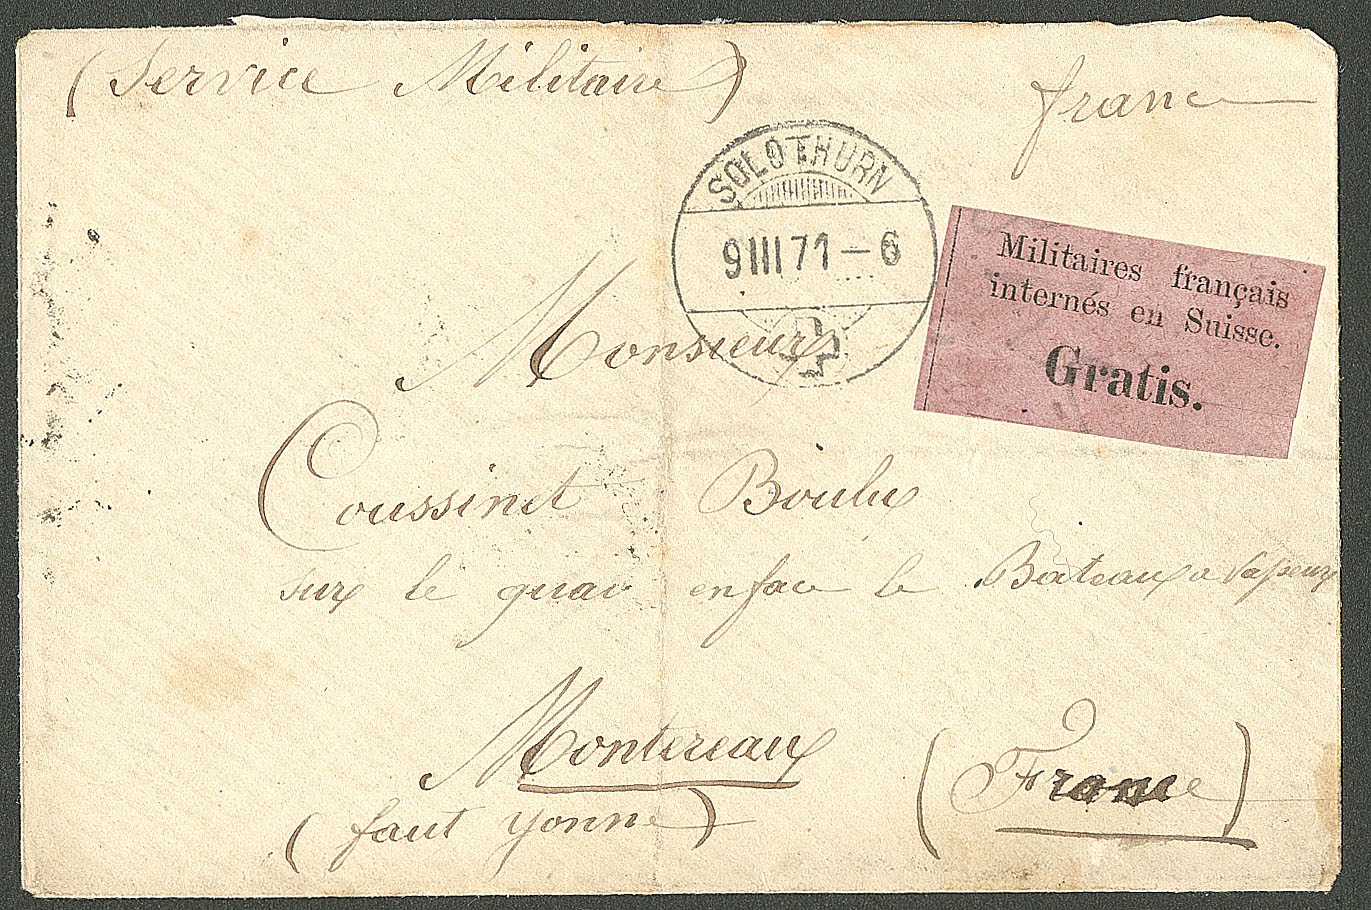 (Service Militaire)
france
SOLOTHURN
9 III 71 – 6
Militaires français
internés en Suisse.
Gratis.
Monsieur
Coussinet Boulu
sur le quai enface le Bateaux a Vapeur
Montereaux
(faut yonne)
(France)